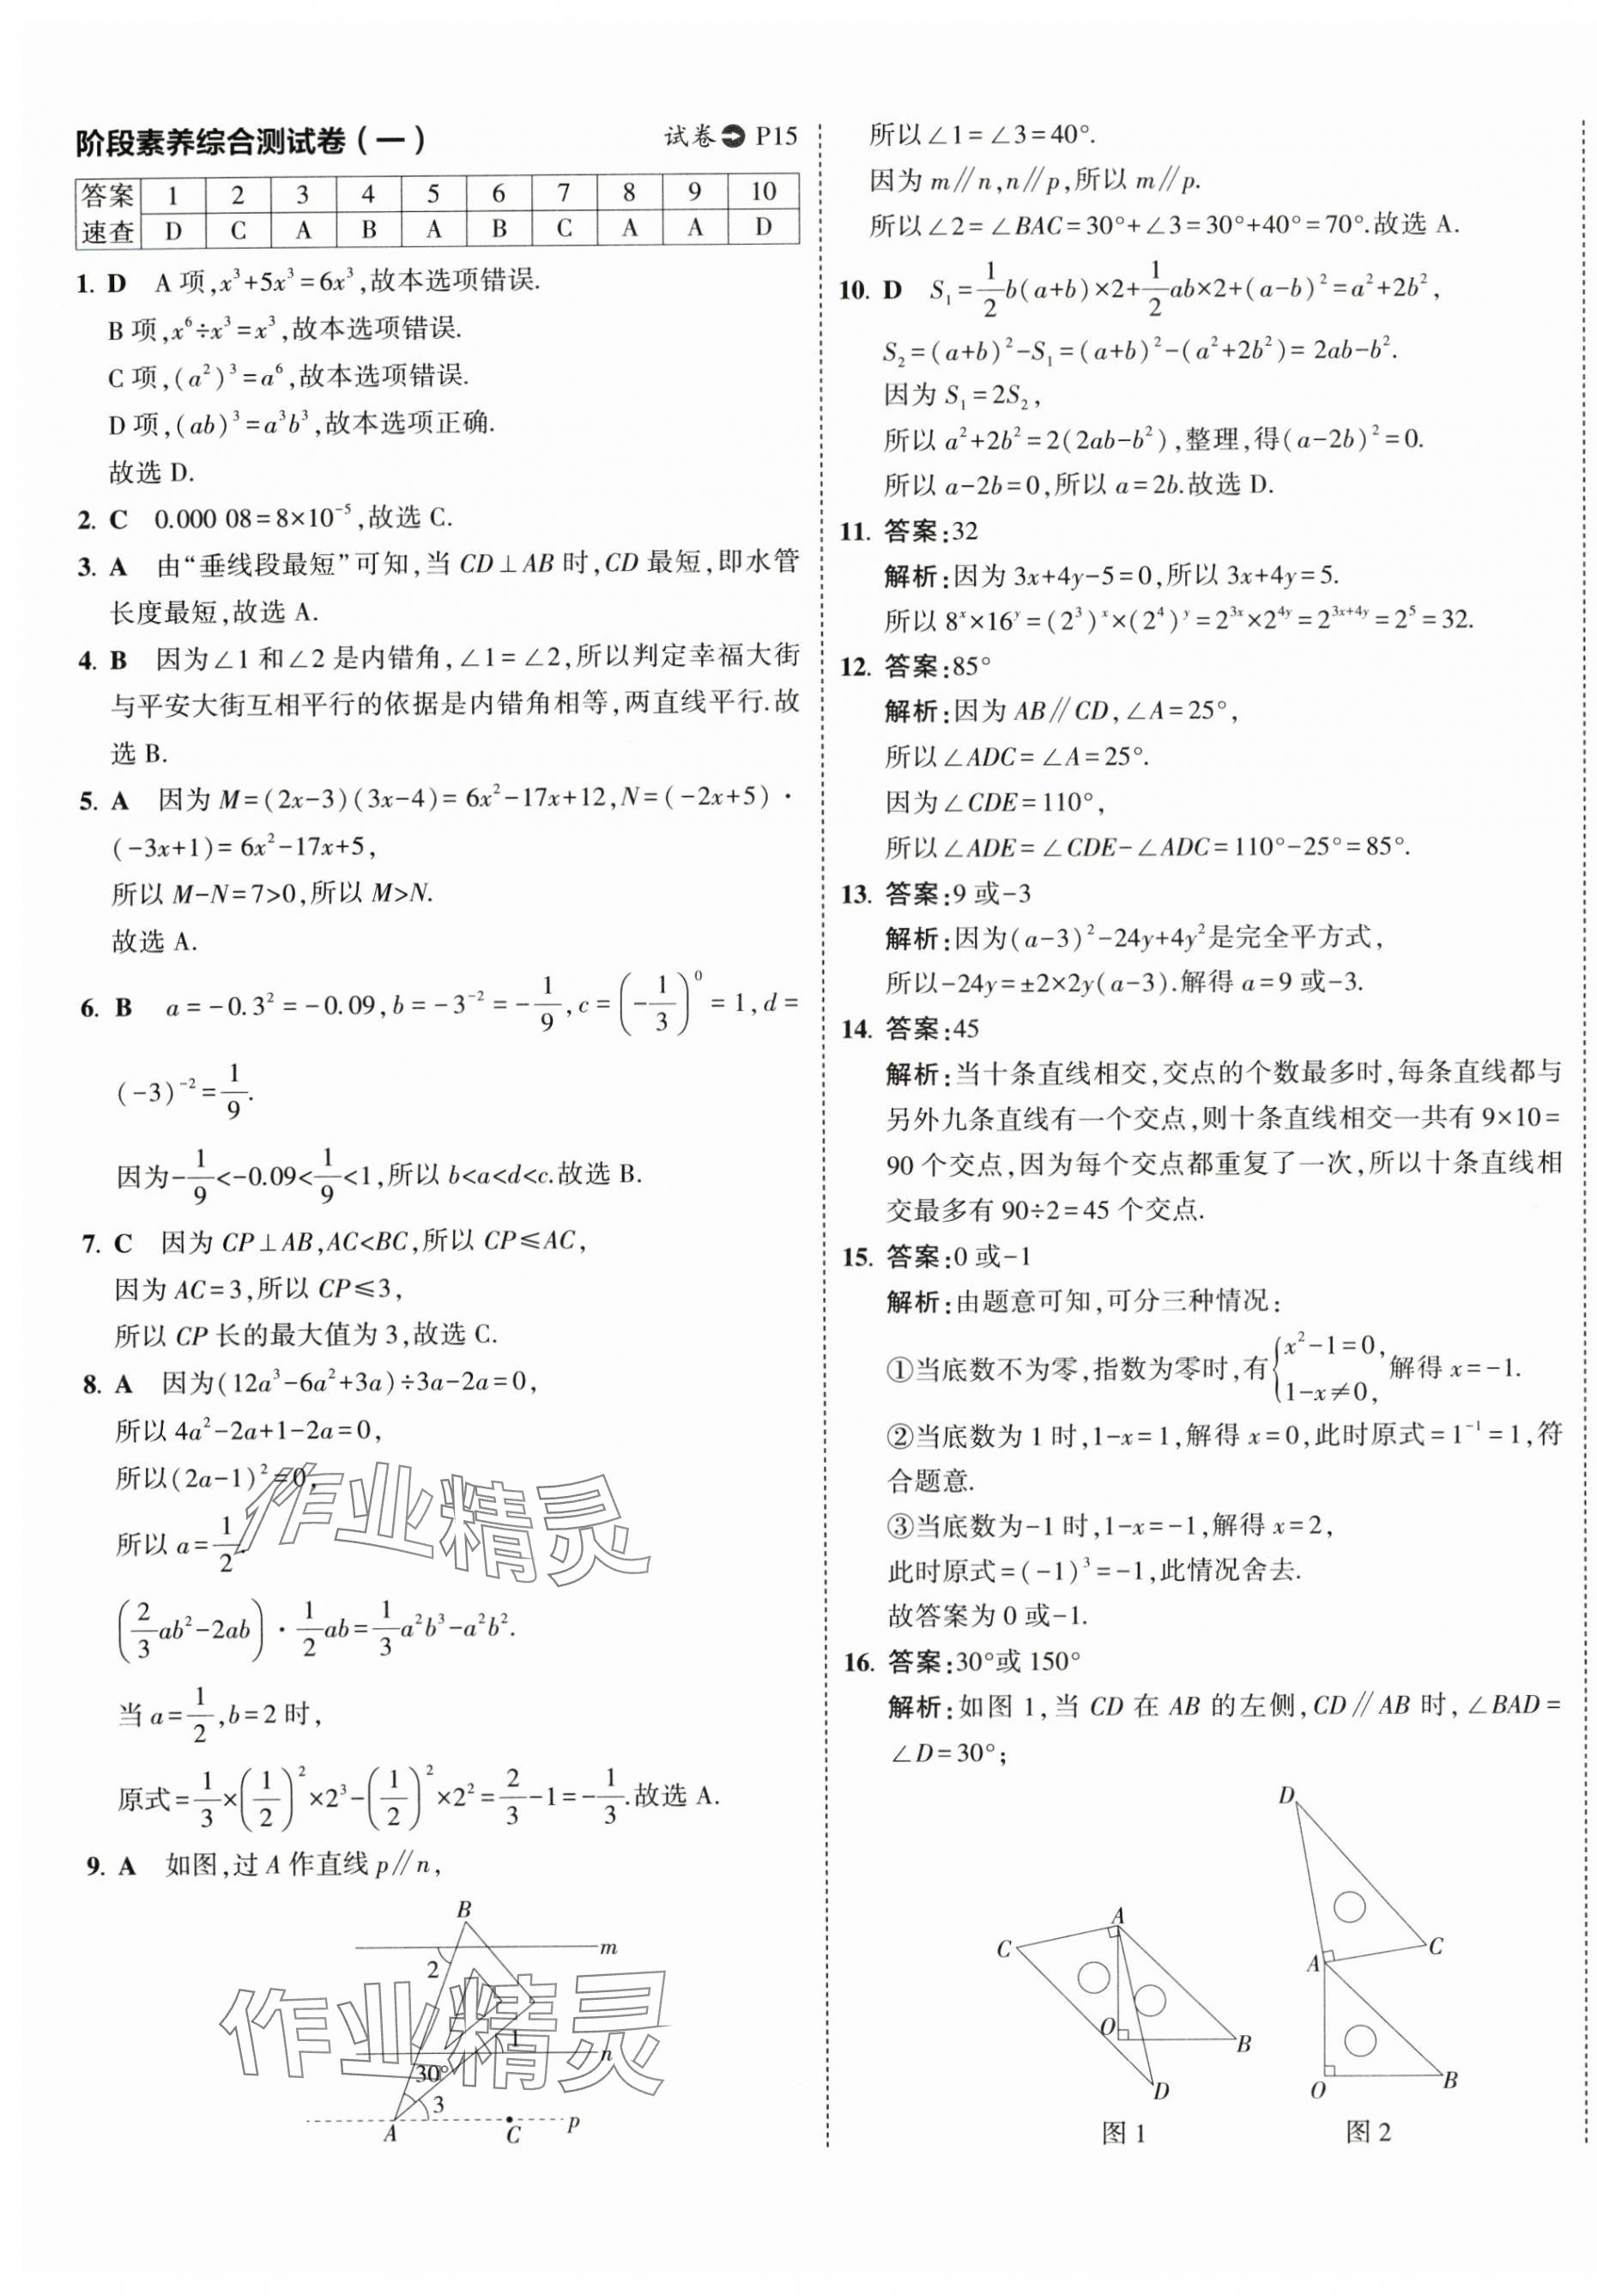 阶段素养综合测试卷(一) 试卷 P15
答案速查 1 2 3 4 5 6 7 8 9 10
D C A B A B C A A D
1. D A 项,x³+5x³=6x³,故本选项错误.
B 项,x⁶÷x³=x³,故本选项错误.
C 项,(a²)³=a⁶,故本选项错误.
D 项,(ab)³=a³b³,故本选项正确.
故选 D.
2. C 0.000 08=8×10⁻⁵,故选 C.
3. A 由“垂线段最短”可知,当 CD⊥AB 时,CD 最短,即水管
长度最短,故选 A.
4. B 因为∠1 和∠2 是内错角,∠1=∠2,所以判定幸福大街
与平安大街互相平行的依据是内错角相等,两直线平行.故
选 B.
5. A 因为 M=(2x-3)(3x-4)=6x²-17x+12,N=(-2x+5)·
(-3x+1)=6x²-17x+5,
所以 M-N=7>0,所以 M>N.
故选 A.
6. B a=-0.3²=-0.09,b=-3⁻²=-1/9,c=(-1/3)⁰=1,d=
(-3)⁻²=1/9.
因为-1/9<-0.09<1/9<1,所以 b<a<d<c.故选 B.
7. C 因为 CP⊥AB,AC<BC,所以 CP≤AC,
因为 AC=3,所以 CP≤3,
所以 CP 长的最大值为 3,故选 C.
8. A 因为(12a³-6a²+3a)÷3a-2a=0,
所以 4a²-2a+1-2a=0,
所以(2a-1)²=0,
所以 a=1/2.
(2/3ab²-2ab)·1/2ab=1/3a²b³-a²b².
当 a=1/2,b=2 时,
原式=1/3×(1/2)²×2³-(1/2)²×2²=2/3-1=-1/3.故选 A.
9. A 如图,过 A 作直线 p∥n,
B
m
2
1
n
30°
3
A
C
p
作业精灵
作业精灵
所以∠1=∠3=40°.
因为 m∥n,n∥p,所以 m∥p.
所以∠2=∠BAC=30°+∠3=30°+40°=70°.故选 A.
10. D S₁=1/2b(a+b)×2+1/2ab×2+(a-b)²=a²+2b²,
S₂=(a+b)²-S₁=(a+b)²-(a²+2b²)=2ab-b².
因为 S₁=2S₂,
所以 a²+2b²=2(2ab-b²),整理,得(a-2b)²=0.
所以 a-2b=0,所以 a=2b.故选 D.
11. 答案:32
解析:因为 3x+4y-5=0,所以 3x+4y=5.
所以 8ˣ×16ʸ=(2³)ˣ×(2⁴)ʸ=2³ˣ×2⁴ʸ=2³ˣ⁺⁴ʸ=2⁵=32.
12. 答案:85°
解析:因为 AB∥CD,∠A=25°,
所以∠ADC=∠A=25°.
因为∠CDE=110°,
所以∠ADE=∠CDE-∠ADC=110°-25°=85°.
13. 答案:9 或-3
解析:因为(a-3)²-24y+4y²是完全平方式,
所以-24y=±2×2y(a-3).解得 a=9 或-3.
14. 答案:45
解析:当十条直线相交,交点的个数最多时,每条直线都与
另外九条直线有一个交点,则十条直线相交一共有 9×10=
90 个交点,因为每个交点都重复了一次,所以十条直线相
交最多有 90÷2=45 个交点.
15. 答案:0 或-1
解析:由题意可知,可分三种情况:
①当底数不为零,指数为零时,有{x²-1=0, 1-x≠0, 解得 x=-1.
②当底数为 1 时,1-x=1,解得 x=0,此时原式=1⁻¹=1,符
合题意.
③当底数为-1 时,1-x=-1,解得 x=2,
此时原式=(-1)³=-1,此情况舍去.
故答案为 0 或-1.
16. 答案:30°或 150°
解析:如图 1,当 CD 在 AB 的左侧,CD∥AB 时,∠BAD=
∠D=30°;
A
C
O
B
D
图 1
D
C
A
O
B
图 2